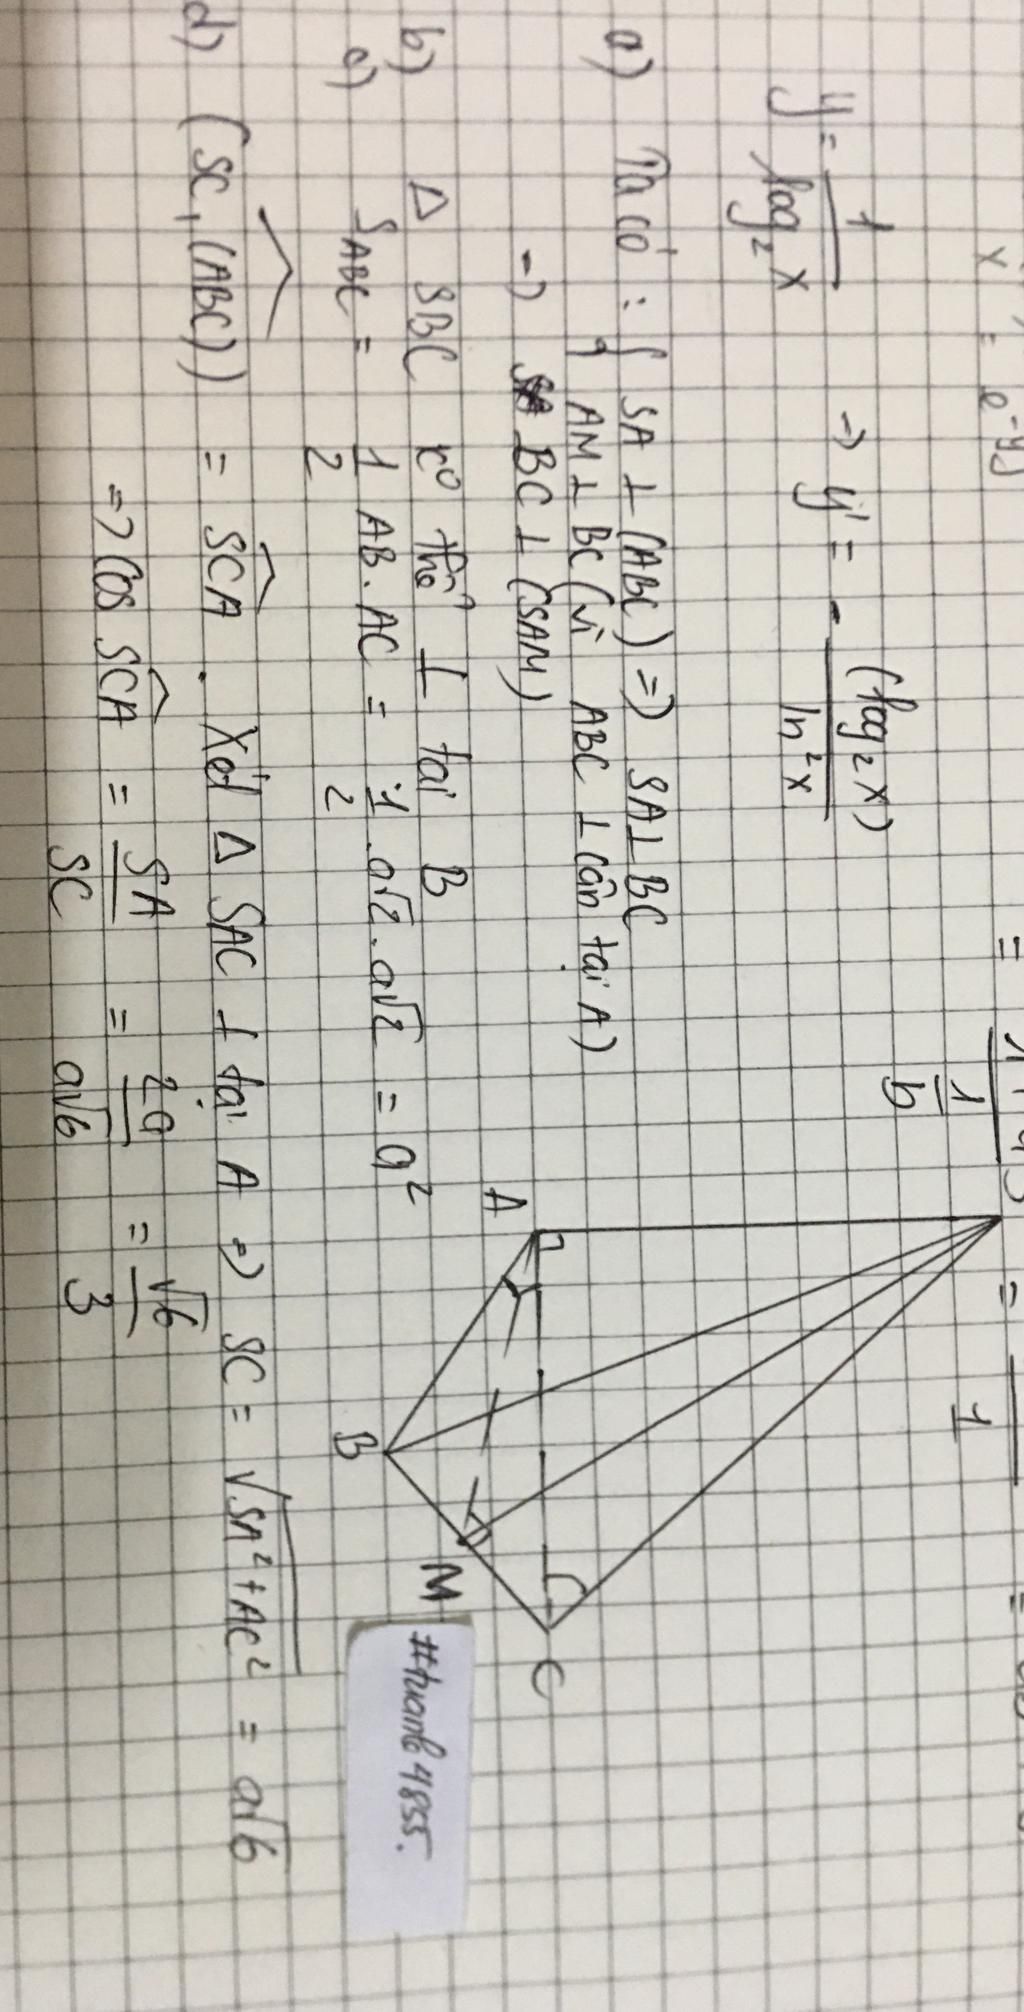 x = e^-y)
= 1/b = 1
y = 1/log₂x → y' = - (log₂x)/ln²x
a) Ta có : { SA ⊥ (ABC) => SA ⊥ BC
AM ⊥ BC (vì ABC ⊥ cân tại A)
→ BC ⊥ (SAM)
b) Δ SBC k° thể ⊥ tại B
c) S_ABC = 1/2 AB.AC = 1/2 .a√2.a√2 = a²
d) (SC,(ABC)) = SCA . Xét Δ SAC ⊥ tại A → SC = √SA²+AC² = a√6
=> Cos SCA = SA/SC = 2a/a√6 = √6/3
S
A
B
M
C